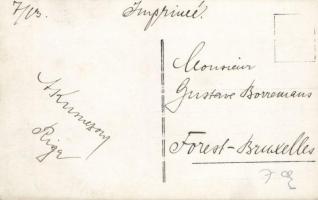 7/13. Imprimé.
Monsieur
Gustave Borremans
Forest-Bruxelles
Riga